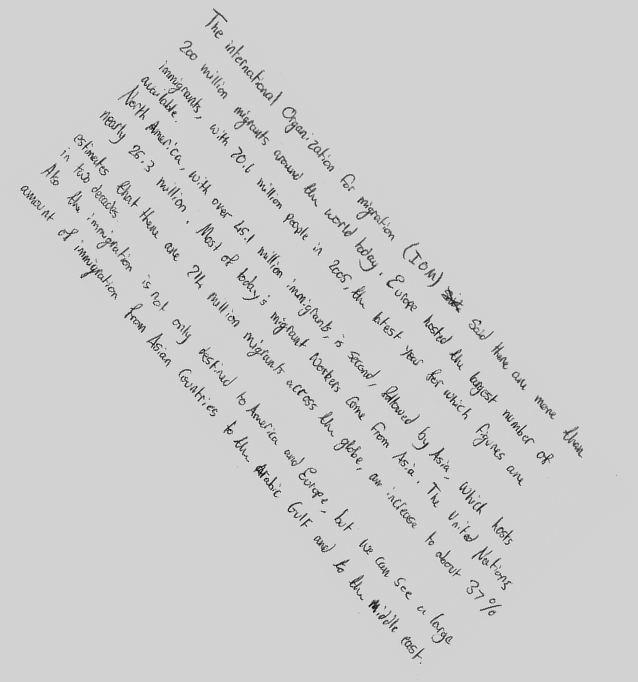 The international Organization for migration (IOM) said there are more than
200 million migrants around the world today. Europe hosted the largest number of
immigrants, with 70.6 million people in 2005, the latest year for which figures are
available.
North America, with over 45.1 million immigrants, is second, followed by Asia, which hosts
nearly 25.3 million. Most of today's migrant workers come from Asia. The United Nations
estimates that there are 214 million migrants across the globe, an increase to about 37%
in two decades.
Also the immigration is not only destined to America and Europe, but we can see a large
amount of immigration from Asian Countries to the Arabic Gulf and to the middle east.